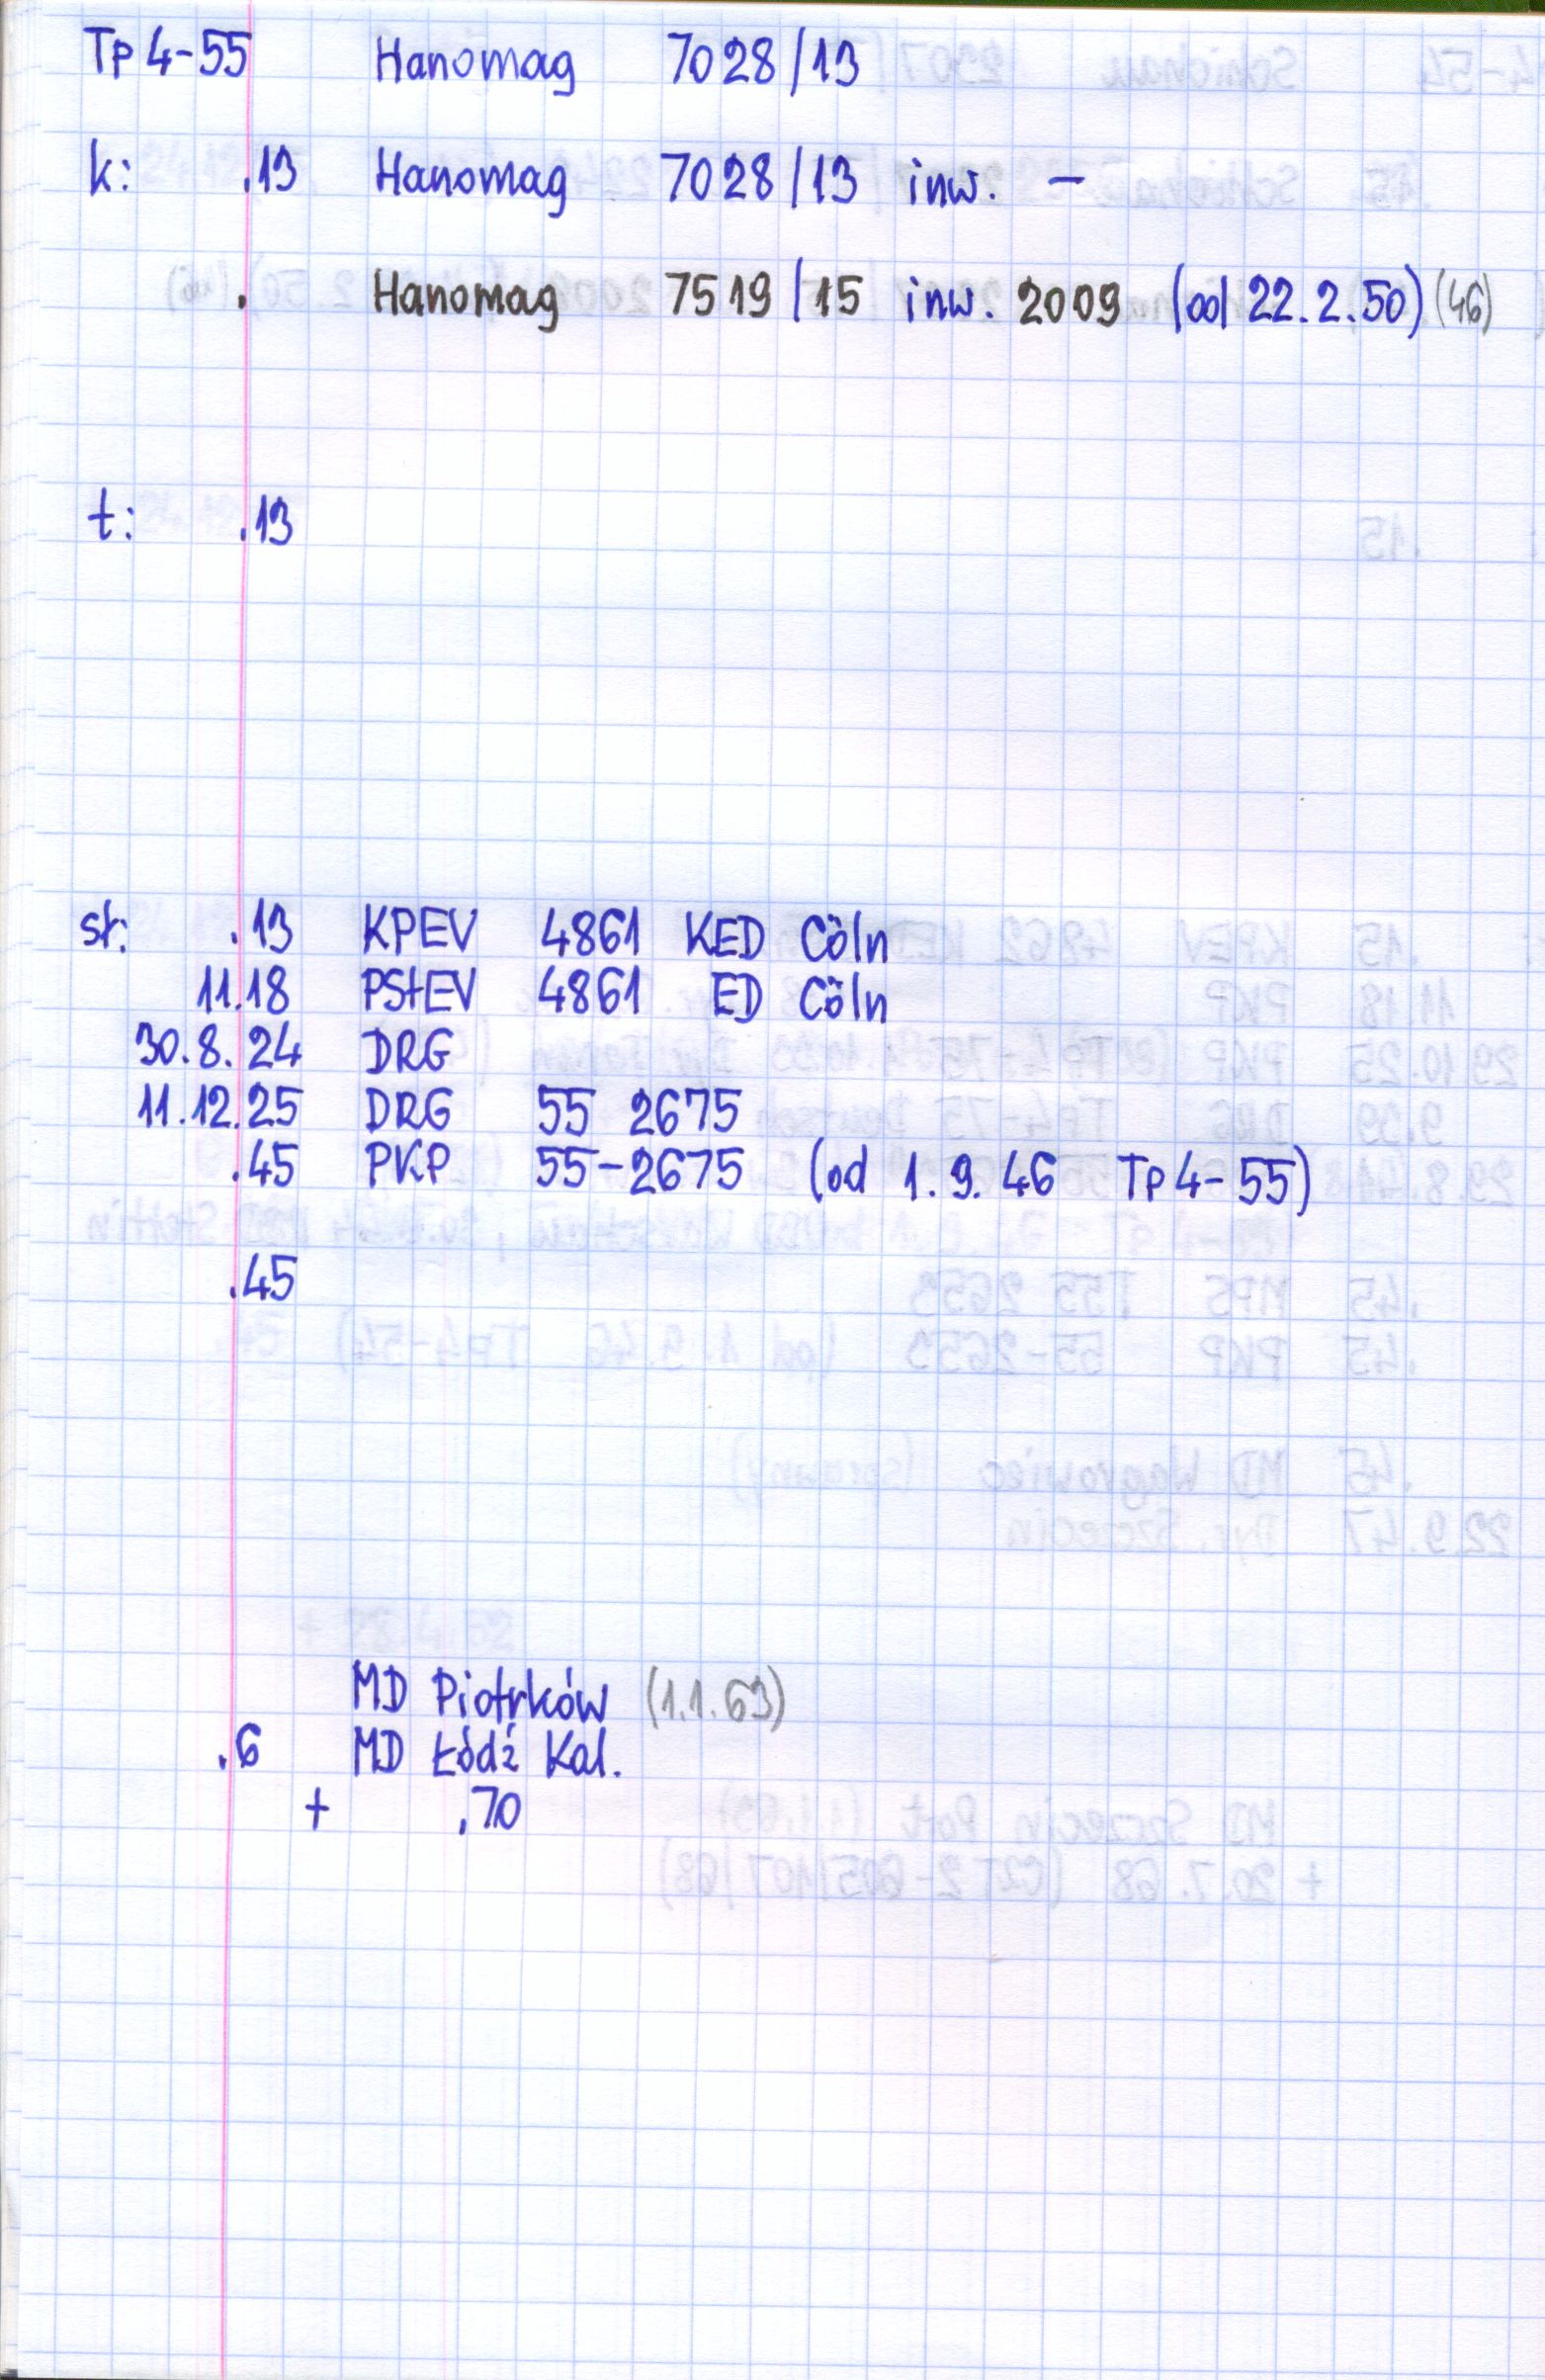 Tp 4-55 Hanomag 7028/13
k: .13 Hanomag 7028/13 inw. -
. Hanomag 7519/15 inw. 2009 (od 22.2.50) (46)
t: .13
st: .13 KPEV 4861 KED Cöln
11.18 PStEV 4861 ED Cöln
30.8.24 DRG
11.12.25 DRG 55 2675
.45 PKP 55-2675 (od 1.9.46 Tp 4-55)
.45
MD Piotrków (1.1.63)
.6 MD Łódź Kal.
+ .70